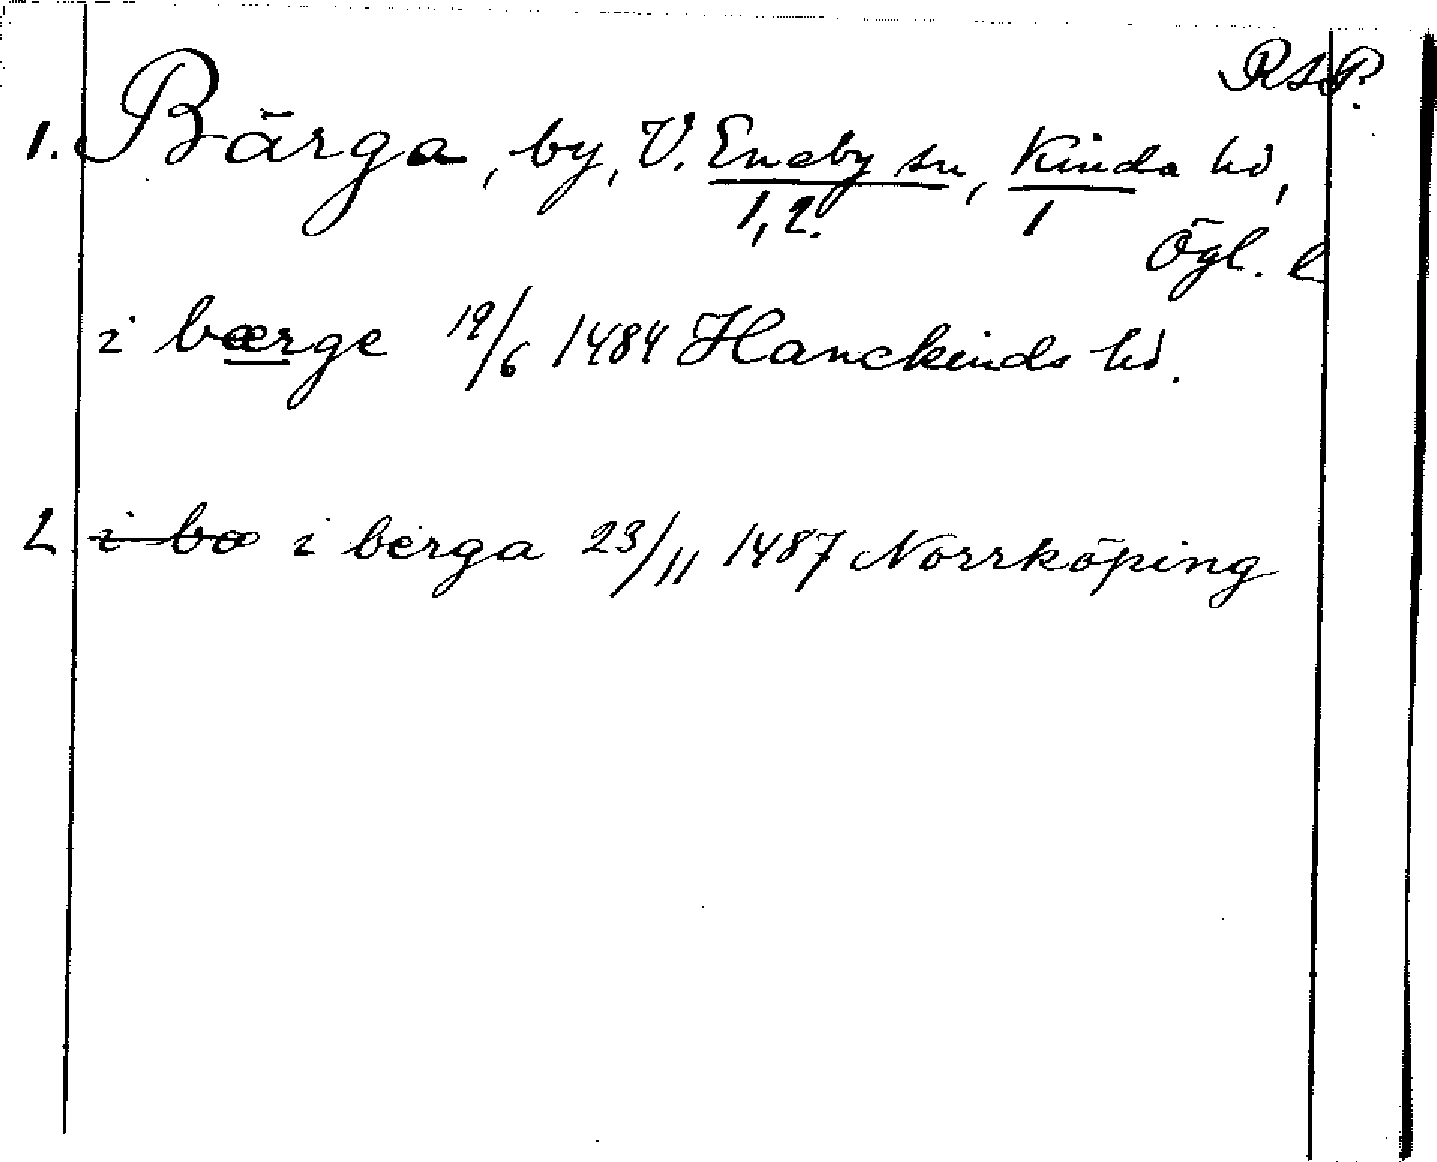 RAP.
1. Bärga, by, V. Eneby sn, Kinda hd,
1,2. 1
Ögl. l
i bærge 19/6 1484 Hanekinds hd.
2 i bo i berga 23/11 1487 Norrköping